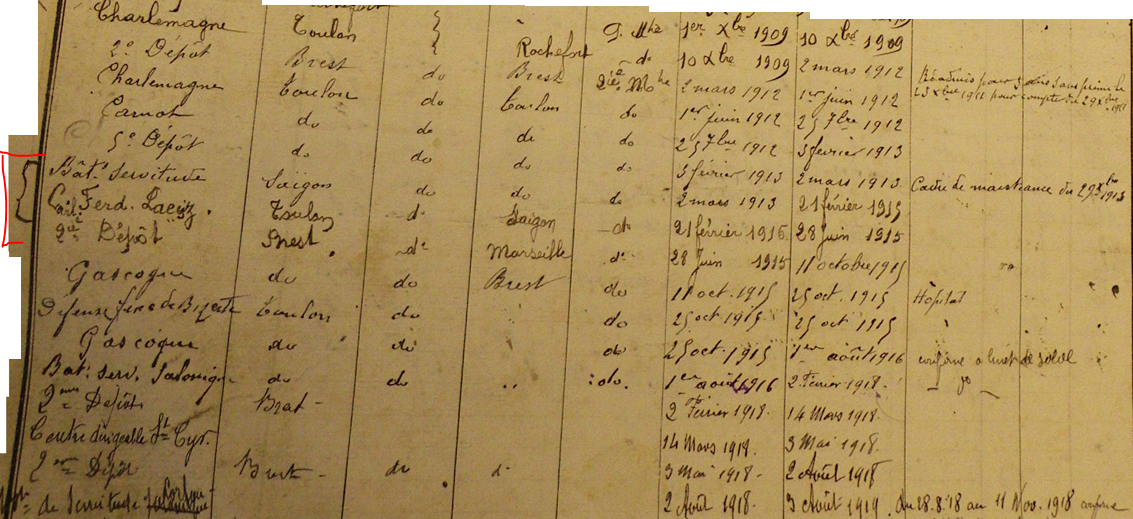 Charlemagne Toulon 1er Xbre 1909 10 Xbre 1909
2e Dépôt Brest do Rochefort do 10 Xbre 1909 2 mars 1912
Charlemagne Toulon do Brest 2 mars 1912 1er juin 1912 Réadmis pour 3 ans sans prime le
Carnot do do Toulon do 1er juin 1912 25 7bre 1912 23 Xbre 1911 pour compter du 29 Xbre 1911
5e Dépôt do do do do 25 7bre 1912 5 février 1913
Bât. Servitude Saïgon do do do 5 février 1913 2 mars 1913 Cadre de maistrance du 29 Xbre 1913
Ferd. Laeisz. Toulon do Saïgon do 2 mars 1913 21 février 1915
2e Dépôt Brest do Marseille do 21 février 1915 28 juin 1915
Gascogne do do Brest do 28 Juin 1915 11 octobre 1915
Défense fixe de Bizerte Toulon do do 11 oct. 1915 25 oct. 1915 Hôpital
Gascogne do do do 25 oct 1915 25 oct 1915
Bat. serv. Salonique do do " do. 25 oct. 1915 1er août 1916 conforme a livret de solde
2me Dépôt Brest - 1er août 1916 2 Février 1918.
Centre dirigeable St Cyr. 2 Février 1918. 14 Mars 1918.
14 Mars 1918 3 Mai 1918.
2me Dépôt Brest - do d- 3 Mai 1918 - 2 Août 1918
de Servitude 2 Août 1918. 3 Août 1919. du 28.8.18 au 11 Nov. 1918 conforme